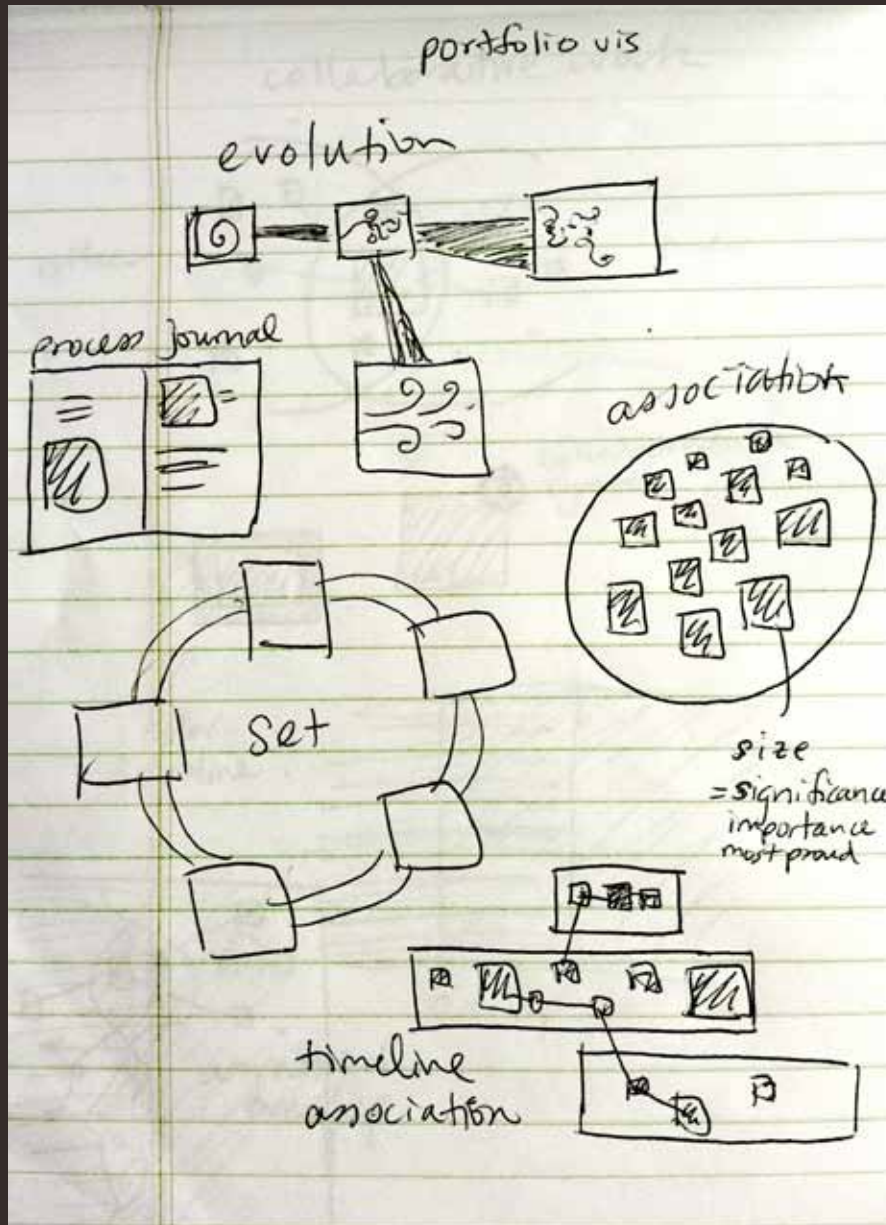 portfolio vis
evolution
process journal
association
set
size
= significance
importance
most proud
timeline
association